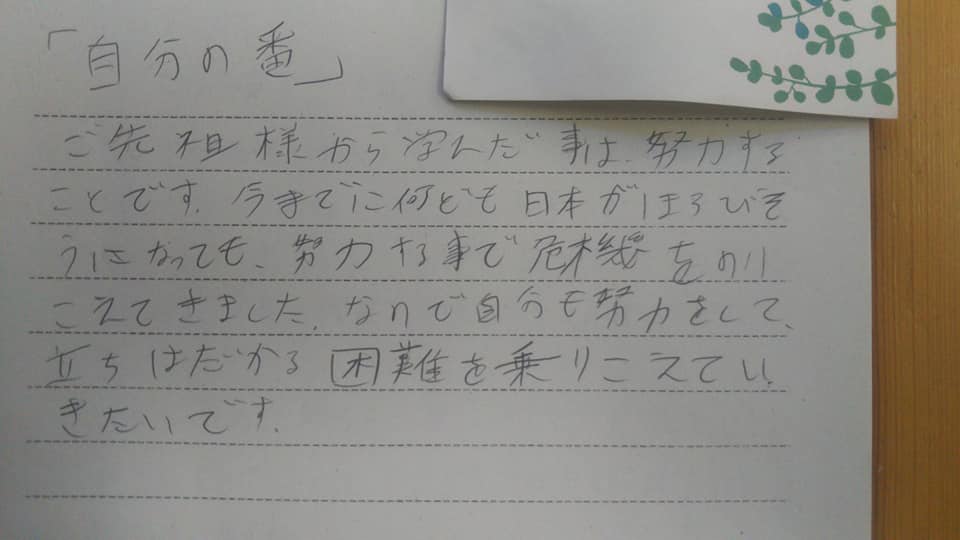 「自分の番」
ご先祖様から学んだ事は、努力する
ことです。今までに何ども日本がほろびそ
うになっても、努力する事で危機をのり
こえてきました。なので自分も努力をして、
立ちはだかる困難を乗りこえてい
きたいです。